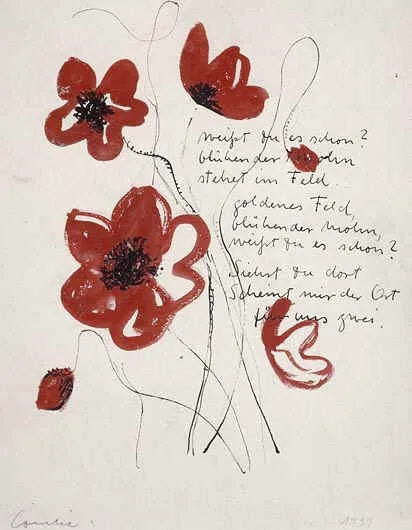 weißt du es schon?
blühender Mohn
stehet im Feld...
goldenes Feld,
blühender Mohn,
weißt du es schon?
Siehst du dort
Scheint mir der Ort
für uns zwei.